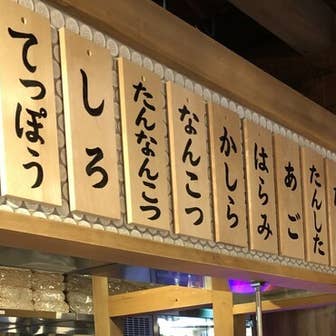 てっぽう
しろ
たんなんこつ
なんこつ
かしら
はらみ
あご
たんした